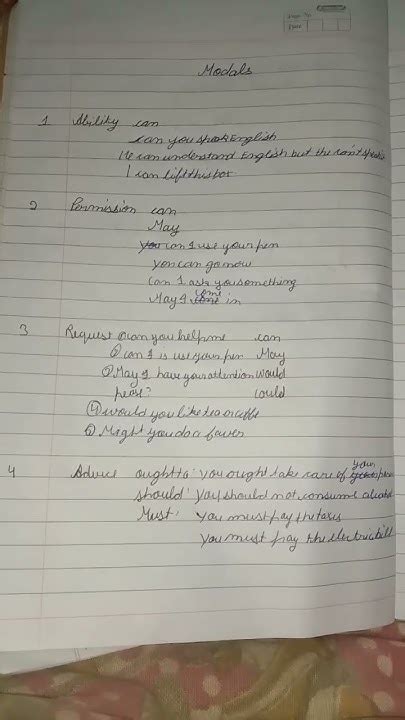 Page No.
Date
Modals
1 Ability can
can you speak English
He can understand English but the can't speak
I can lift this box
2 Permission can
May
You can I use your pen
you can go now
can I ask you something
May I come in
3 Request can you help me can
can I is use your pen May
May I have your attention would
please? could
④ would you like tea or coffe
Might you do a faver
4 Advice ought to: you ought take care of your
should: you should not consume
Must: you must pay the taxes
you must pay the electric bill